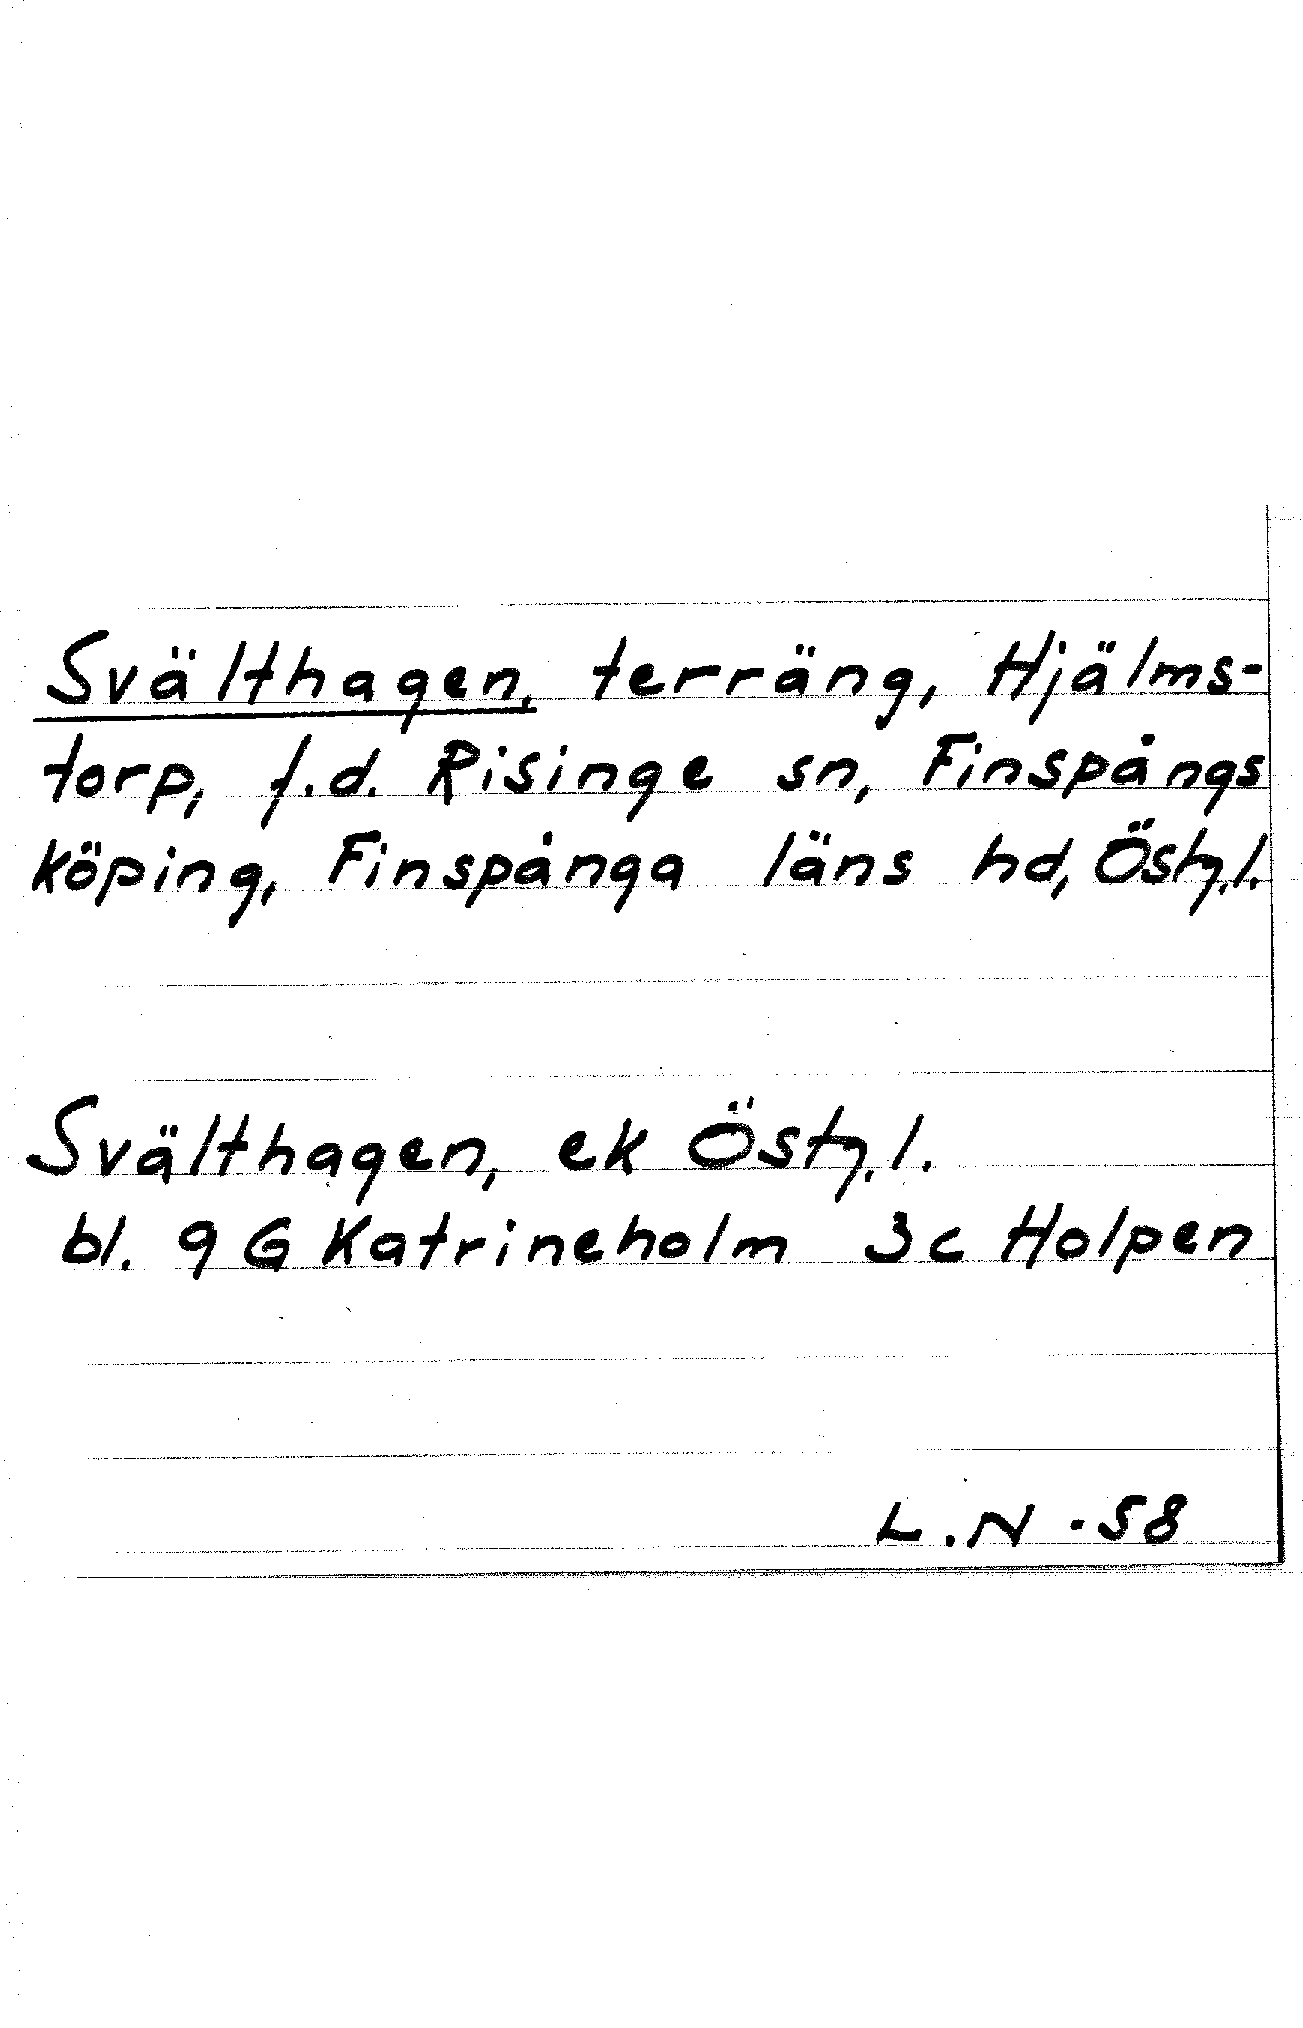 Svälthagen, terräng, Hjälms-
torp, f.d. Risinge sn, Finspångs
köping, Finspånga läns hd, Östg.l.
Svälthagen, ek Östg.l.
bl. 9 G Katrineholm 3c Holpen
L.N -58